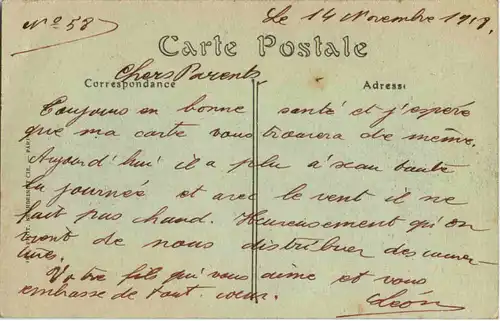 No 58
Le 14 Novembre 1919.
Carte Postale
Chers Parents
Correspondance
Adresse
Toujours en bonne santé et j'espère
que ma carte vous trouvera de même.
Aujourd'hui il a plu à seau toute
la journée et avec le vent il ne
fait pas chaud. Heureusement qu'on
vient de nous distribuer des couver-
tures.
Votre fils qui vous aime et vous
embrasse de tout cœur.
Léon